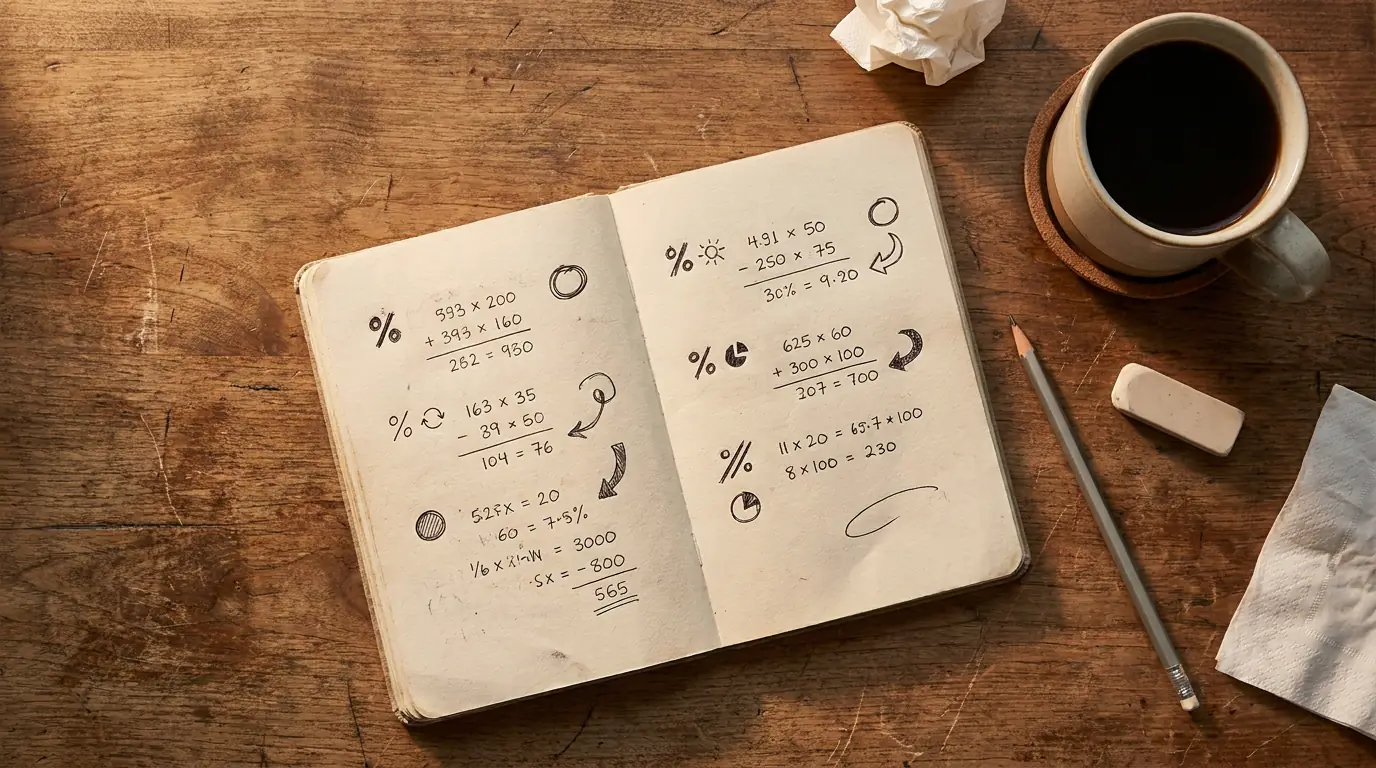 % 593 × 200
+ 393 × 160
262 = 930
% 163 × 35
- 89 × 50
104 = 76
= 20
60 = 7.5%
= 3000
.5x = -800
565
% 4.91 × 50
- 250 × 75
30% = 9.20
% 625 × 60
+ 300 × 100
307 = 700
% 11 × 20 = 65.7 * 100
8 × 100 = 230